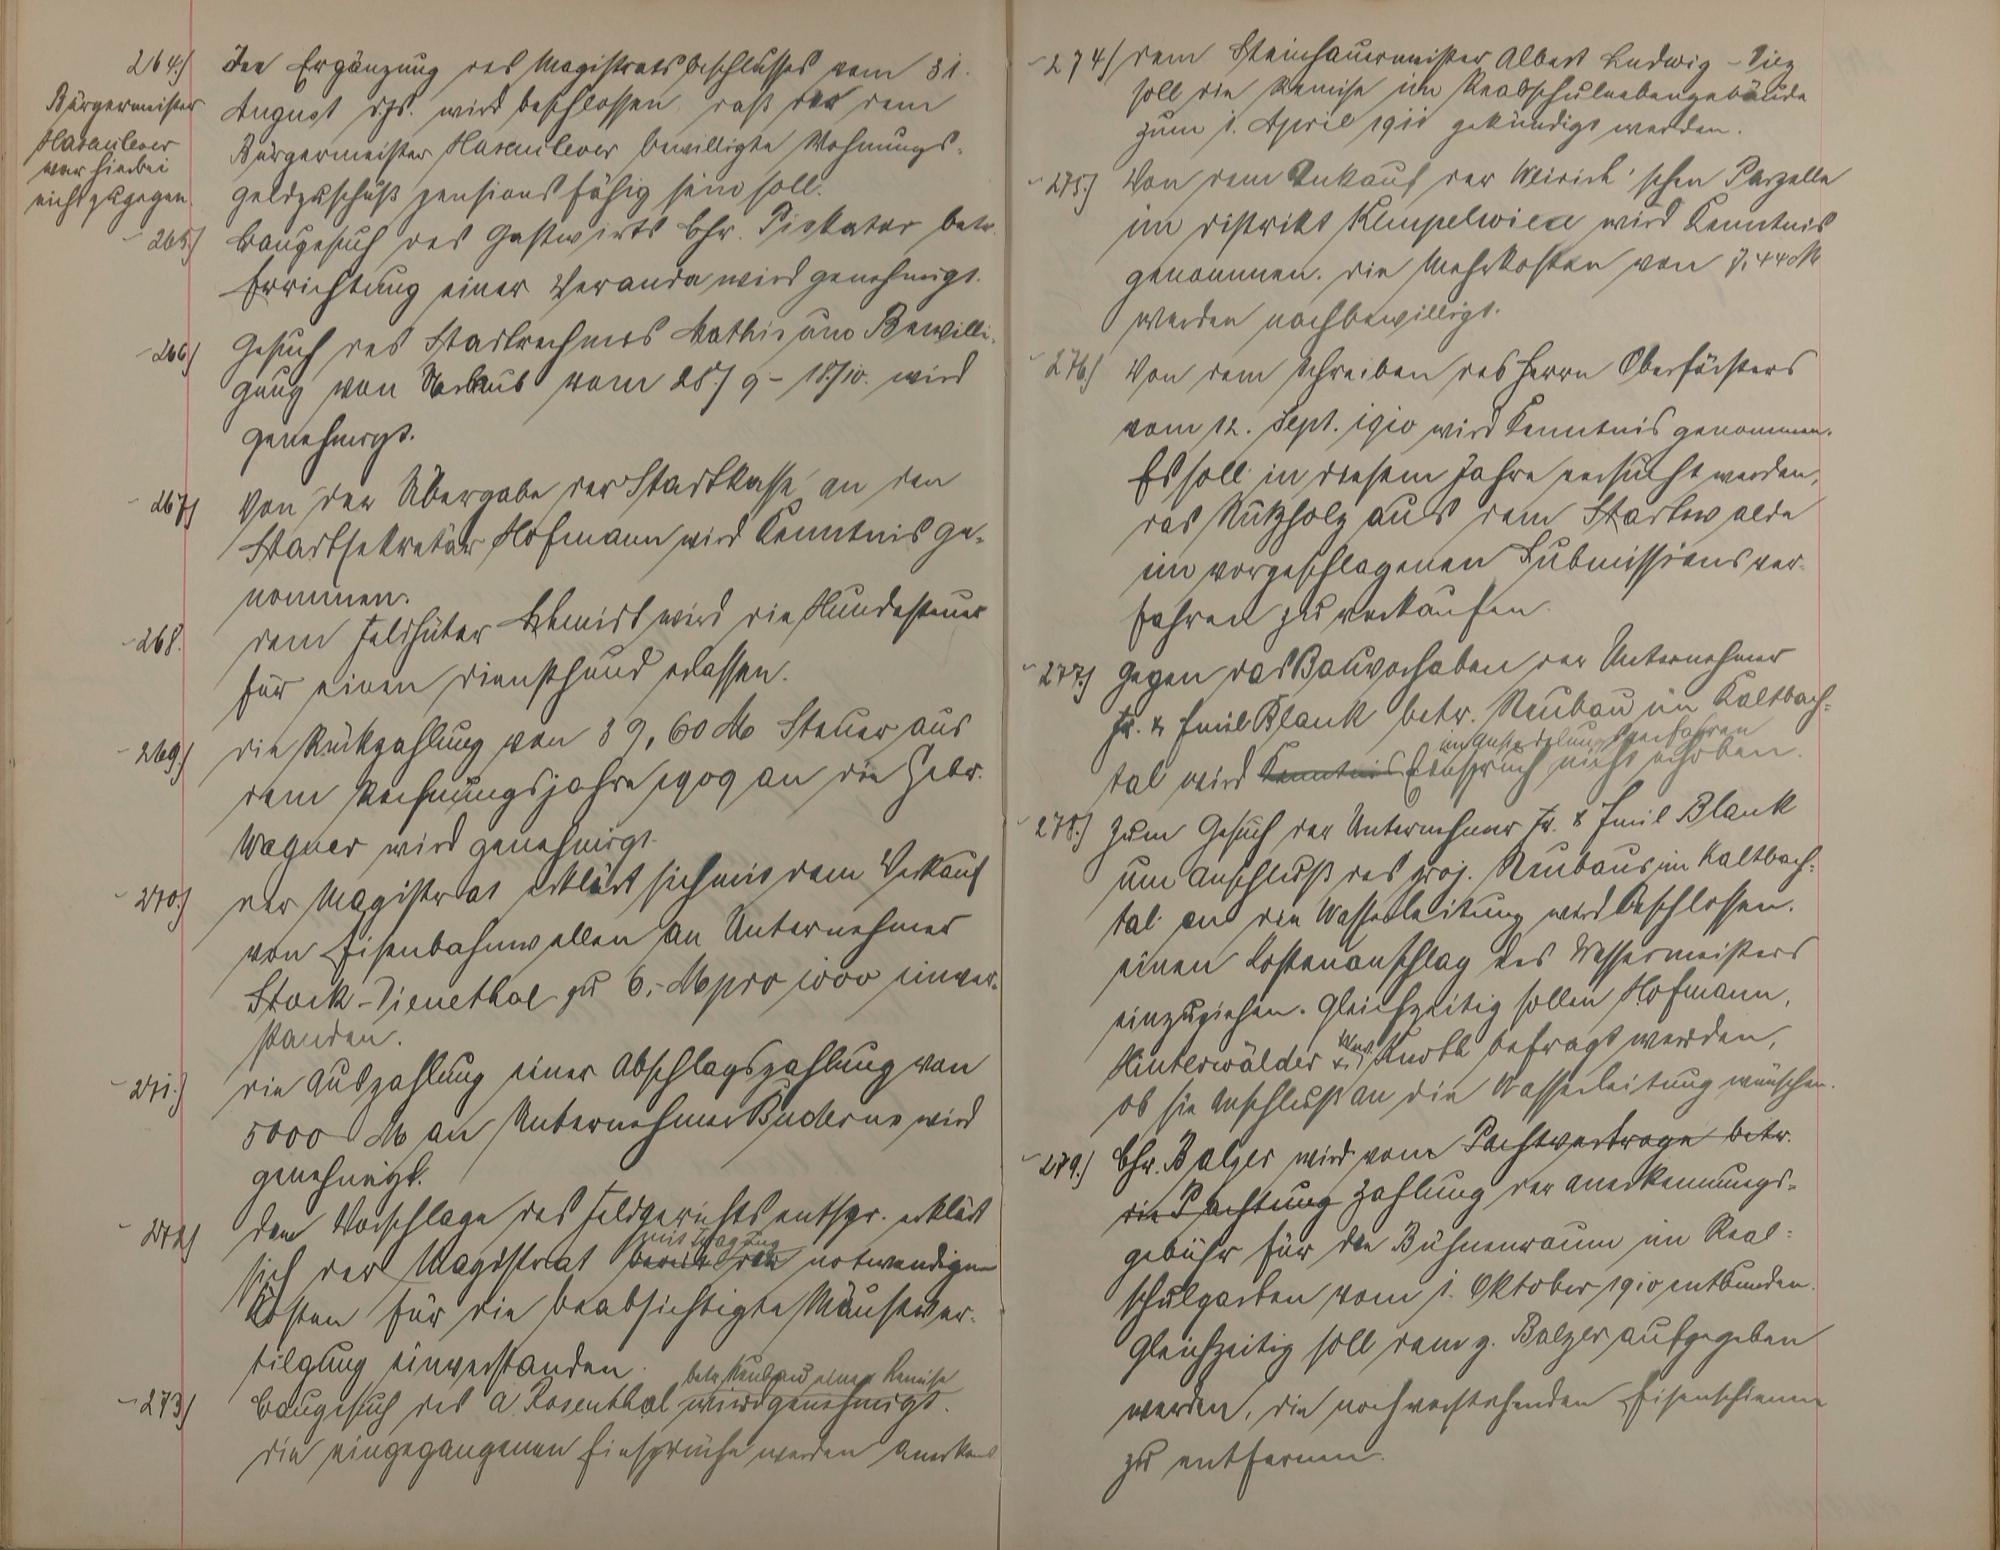 264.) In Ergänzung des Magistratsbeschlusses vom 31.
August d. Js. wird beschlossen, daß der dem
Bürgermeister Hasenclever bewilligte Wohnungs-
geldzuschuß pensionsfähig sein soll.
Bürgermeister
Hasenclever
war hierbei
nicht zugegen.
265.) Baugesuch des Gastwirts Chr. Piskator betr.
Errichtung einer Veranda wird genehmigt.
266.) Gesuch des Stadtrechners Mathis um Bewilli-
gung von Urlaub vom 25./9 - 15./10. wird
genehmigt.
267.) Von der Übergabe der Stadtkasse an den
Stadtsekretär Hofmann wird Kenntnis ge-
nommen.
268. dem Feldhüter Schmidt wird die Hundesteuer
für einen Diensthund erlassen.
269.) die Rückzahlung von 39,60 M Steuer aus
dem Rechnungsjahre 1909 an die Gebr.
Wagner wird genehmigt.
270.) der Magistrat erklärt sich mit dem Verkauf
von Eisenbahnwellen an Unternehmer
Stock-Dienethal zu 6,- M pro 1000 einver-
standen.
271.) die Auszahlung einer Abschlagszahlung von
5000 M an Unternehmer Buderus wird
genehmigt.
272.) dem Vorschlage des Feldgerichts entspr. erklärt
mit Tragung
sich der Magistrat bereit die notwendigen
Kosten für die beabsichtigte Mäusever-
tilgung einverstanden.
betr. Neubau einer Remise
273.) Baugesuch des A. Rosenthal wird genehmigt.
die eingegangenen Einsprüche werden anerkannt
274.) dem Steinhauermeister Albert Ludwig-Diez
soll die Remise im Realschulnebengebäude
zum 1. April 1911 gekündigt werden.
275.) Von dem Ankauf der Weirich'schen Parzelle
im Distrikt Klimpelwiese wird Kenntnis
genommen. die Mehrkosten von 7,44 M
werden nachbewilligt.
276.) Von dem Schreiben des Herrn Oberförsters
vom 12. Sept. 1910 wird Kenntnis genommen.
Es soll in diesem Jahre versucht werden,
das Nutzholz aus dem Stadtwalde
im vorgeschlagenen Submissionsver-
fahren zu verkaufen.
277.) Gegen das Bauvorhaben der Unternehmer
Fr. & Emil Blank betr. Neubau im Kaltbach-
im Ansiedelungsverfahren
tal wird Kenntnis Einspruch nicht erhoben.
278.) Zum Gesuch der Unternehmer Fr. & Emil Blank
um Anschluß des proj. Neubaus im Kaltbach-
tal an die Wasserleitung wird beschlossen,
einen Kostenanschlag des Wassermeisters
einzuziehen. Gleichzeitig sollen Hofmann,
Hinterwälder & Wwe. Knoth befragt werden,
ob sie Anschluß an die Wasserleitung wünschen.
279.) Chr. Balzer wird vom Pachtvertrage betr.
die Pachtung Zahlung der Anerkennungs-
gebühr für den Bühnenraum im Real-
schulgarten vom 1. Oktober 1910 entbunden.
Gleichzeitig soll dem g. Balzer aufgegeben
werden, die noch vorstehenden Eisenschienen
zu entfernen.